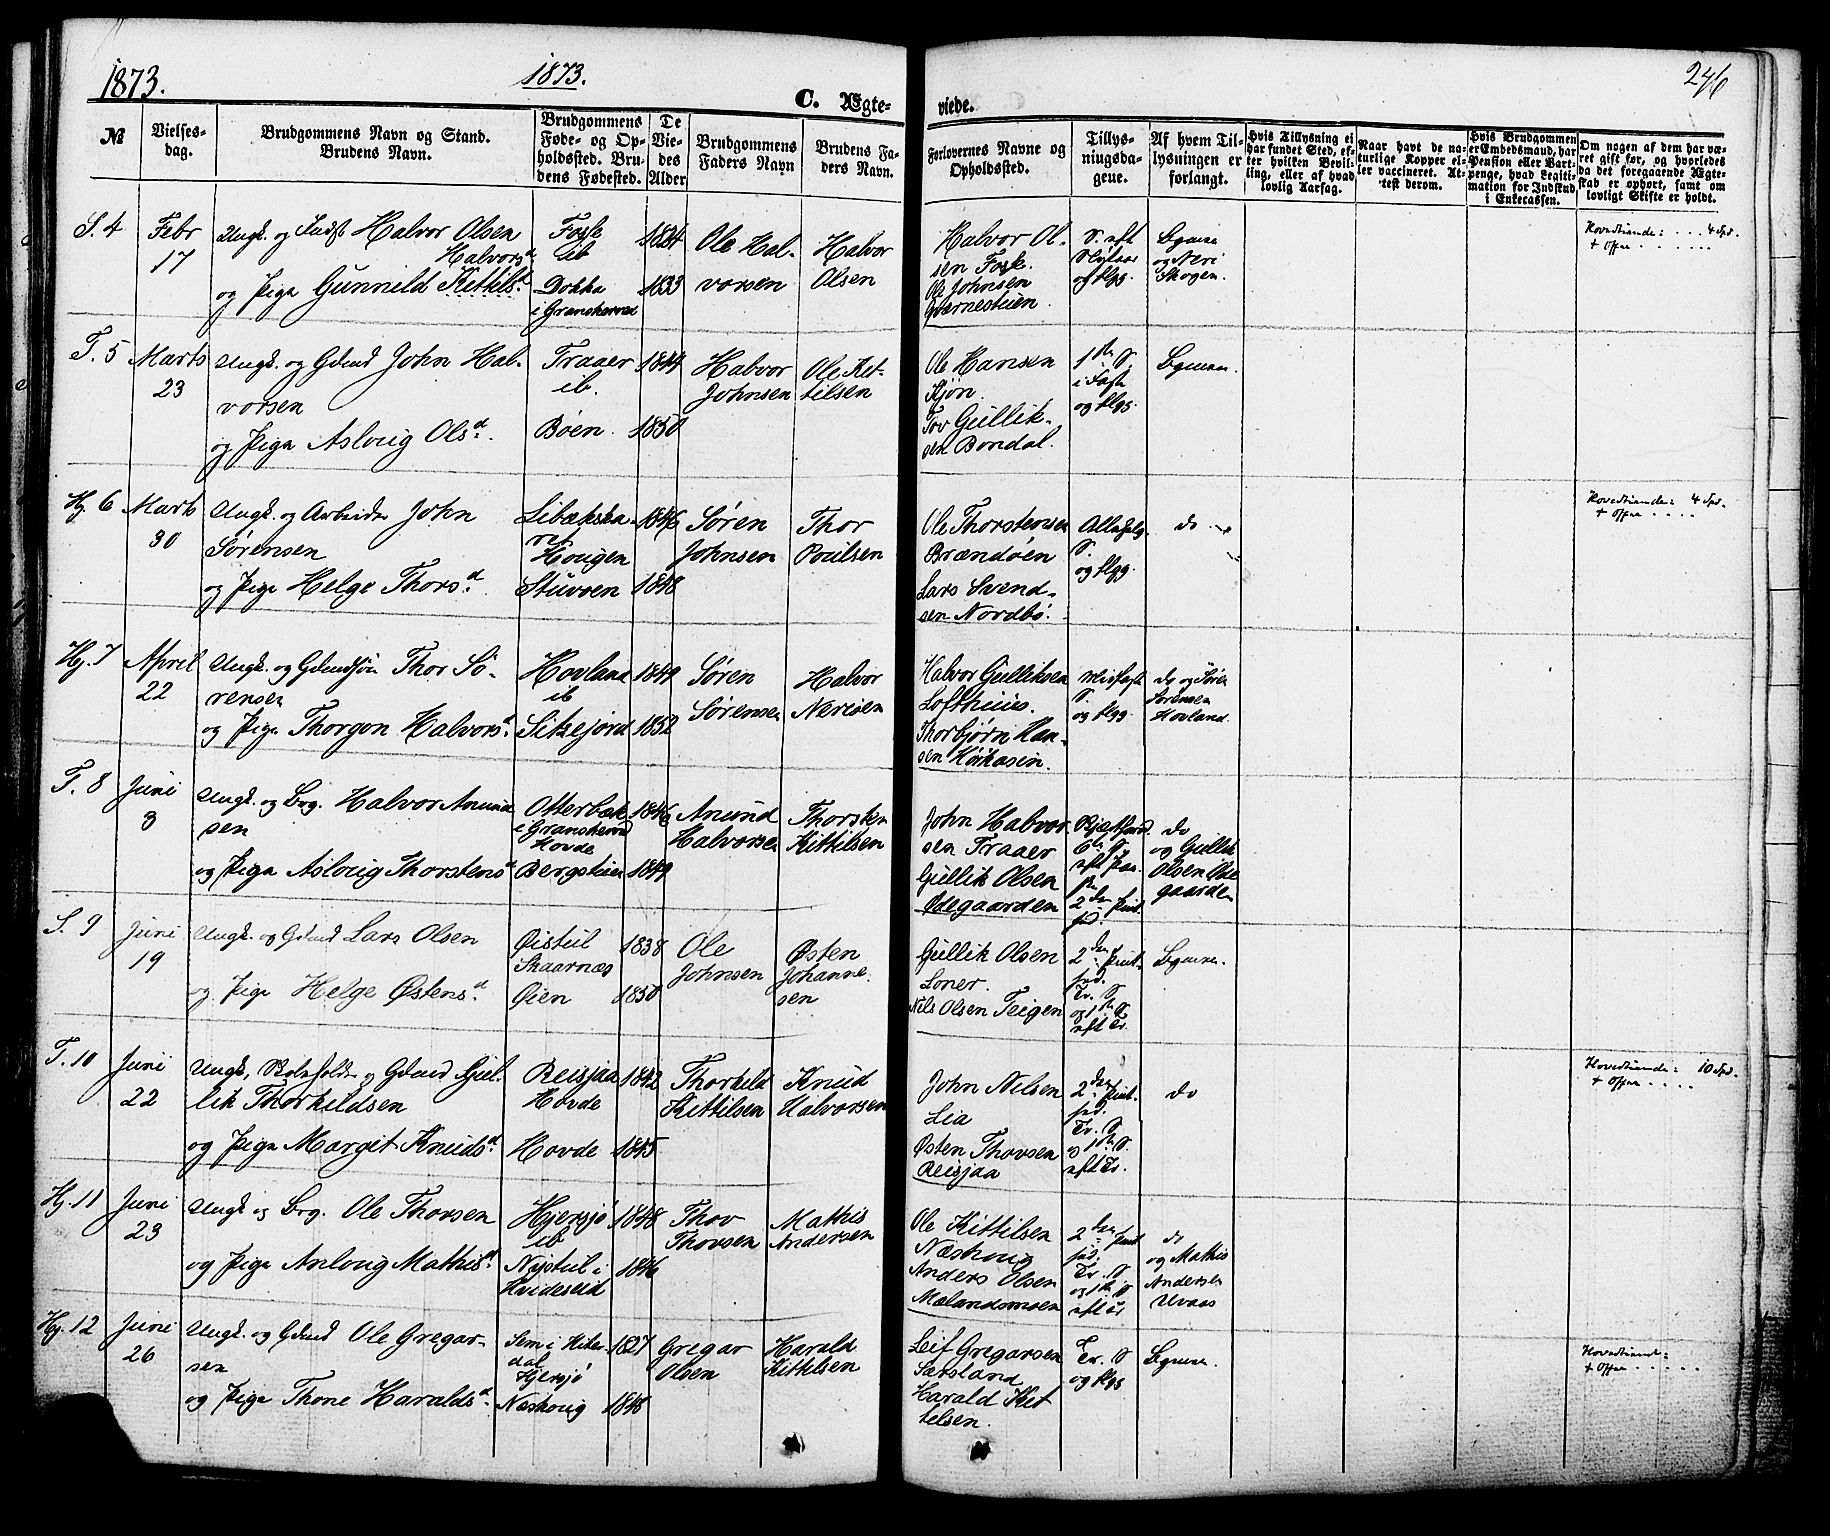 1873.
1873.
246
C. Ægte-
viede.
№
Vielses-
dag.
Brudgommens Navn og Stand.
Brudens Navn.
Brudgommens
Føde- og Op-
holdssted. Bru-
dens Fødested.
De
Vie-
des
Alder
Brudgommens
Faders Navn
Brudens Fa-
ders Navn.
Forlovernes Navne og
Opholdssted.
Tillys-
ningsda-
gene.
Af hvem Til-
lysningen er
forlangt.
Hvis Tillysning ei
har fundet Sted, ef-
ter hvilken Bevil-
ling, eller af hvad
lovlig Aarsag.
Naar havt de na-
turlige Kopper el-
ler vaccineret. At-
test derom.
Hvis Brudgommen
er Embedsmand, har
Pension eller Vart-
penge, hvad Legiti-
mation for Indskud
i Enkecassen.
Om nogen af dem har væ-
ret gift før, og hvorledes
da det foregaaende Ægte-
skab er ophørt, samt om
lovligt Skifte er holdt.
S. 4
Febr
17
Ungk. og Indst Halvor Olsen
Halvorsd
og Pige Gunnild Kittilsd
Fosse
ib
Dokka
i Gransherred
1824
1833
Ole Hal-
vorsen
Halvor
Olsen
Halvor Ol-
sen Fosse.
Ole Johnsen
S. eft
Nytaar
og flgs.
Bgmen
og Neri
Skogen.
Hovedtiende: . . . 4 Spd.
+ Offer . . . . . .
T. 5
Marts
23
Ungk. og Gdmd John Hal-
vorsen
og Pige Asloug Olsd.
Traaer
ib.
Bøen.
1844
1850
Halvor
Johnsen
Ole Kit-
tilsen
Ole Hansen
Kjøn.
Tov Gullik-
sen Bondal.
1ste S.
i Faste
og flgs.
Bgmen.
Hj. 6
Marts
30
Ungk. og Arbeider John
Sørensen
og Pige Helge Thorsd.
Libækska-
ret
Hougen
Stuvoen
1846
1848
Søren
Johnsen
Thor
Poulsen
Ole Thorstensen
Brændøen
Lars Svend-
sen Nordbø.
S.
og flgg.
do
Hovedtiende: 4 Spd.
+ Offer . . . .
Hj. 7
April
22
Ungk. og Gdmdsøn Thor Sø-
rensen
og Pige Thorgon Halvorsd.
Hovland
ib
Sitzejord
1849
1852
Søren
Sørensen
Halvor
Nerisen
Halvor Gulliksen
Lofthuus.
Thorbjørn Han-
sen Kørkasin.
Midfaste
S.
og flgg.
do og Søren
Sørensen
Hovland.
T. 8
Juni
3
Ungk. og Brg. Halvor Anund-
sen
og Pige Asloug Thorstensd
Otterbæk
i Gransherred
Hovde
Bergstuen
1846
1849
Anund
Halvorsen
Thorsten
Kittilsen
John Halvor-
sen Traaer
Gullik Olsen
Ødegaarden
6te S.
eft Paa-
ske
2den Pint.
fd.
do
og Gullik
Olsen Øde-
gaarden
S. 9
Juni
19
Ungk. og Gdmd Lars Olsen
og Pige Helge Østensd.
Øistul
Skaarnæs
Øien
1838
1850
Ole
Johnsen
Østen
Johanne-
sen
Gullik Olsen
Loner.
Nils Olsen Teigen
2den Pint-
fed.
Tr. S
og 1ste S
eft Tr.
Bgmen.
T. 10
Juni
22
Ungk., Boelsholder og Gdmd Gul-
lik Thorkildsen
og Pige Margit Knudsd.
Reisjaa
Hovde
Hovde
1842
1845
Thorkild
Kittilsen
Knud
Halvorsen
John Nilsen
Lia
Østen Thovsen
Reisjaa
2den Pint.
fed.
Tr. S
og 1ste S.
eft Tr.
do
Hovedtiende: 10 Spd.
+ Offer . . . .
Hj. 11
Juni
23
Ungk og Brg. Ole Thovsen
og Pige Anloug Mathisd.
Hjersjø
ib
Nystul i
Hvideseid
1848
1846
Thov
Thovsen
Mathis
Andersen
Ole Kittilsen
Næshoug
Anders Olsen
Mælandsmoen
2den Pint
fed.
Tr. S
og 1ste S
eft Tr
do
og Mathis
Andersen
Uvaas
Hj. 12
Juni
26
Ungk. og Gdmd Ole Gregar-
sen
og Pige Thone Haraldsd.
Sem i Hiter-
dal
Hjersjø
Næshoug
1827
1848
Gregar
Olsen
Harald
Kittilsen
Leif Gregarsen
Sarsland
Harald Kit
tilsen.
Tr. S
og flgs
Bgmen.
Hovedtiende:
+ Offer . . . . .